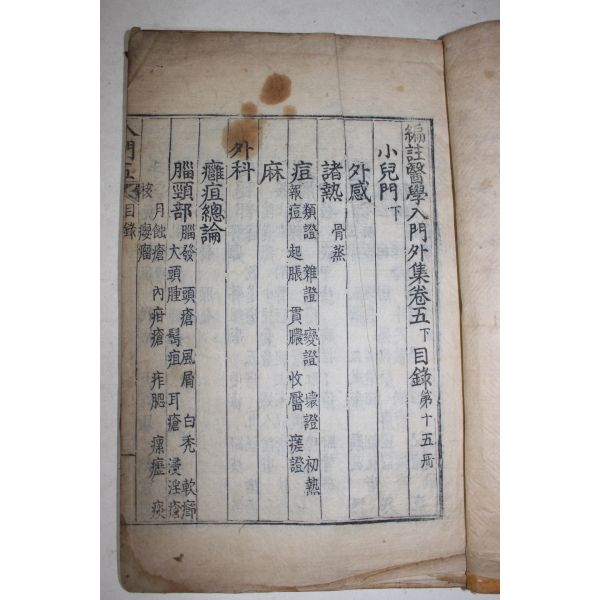 編註醫學入門外集卷五下目錄 第十五冊
小兒門下
外感
諸熱 骨蒸
痘 類證 雜證 變證 壞證 初熱
報痘 起脹 貫膿 收靨 瘥證
麻
外科
癰疽總論
腦頸部 腦發 頭瘡 風屑 白禿 軟癤
大頭腫 髩疽 耳瘡 浸淫瘡
月蝕瘡 內疳瘡 痄腮 瘰癧 痰
核 癭瘤
入門五 目錄